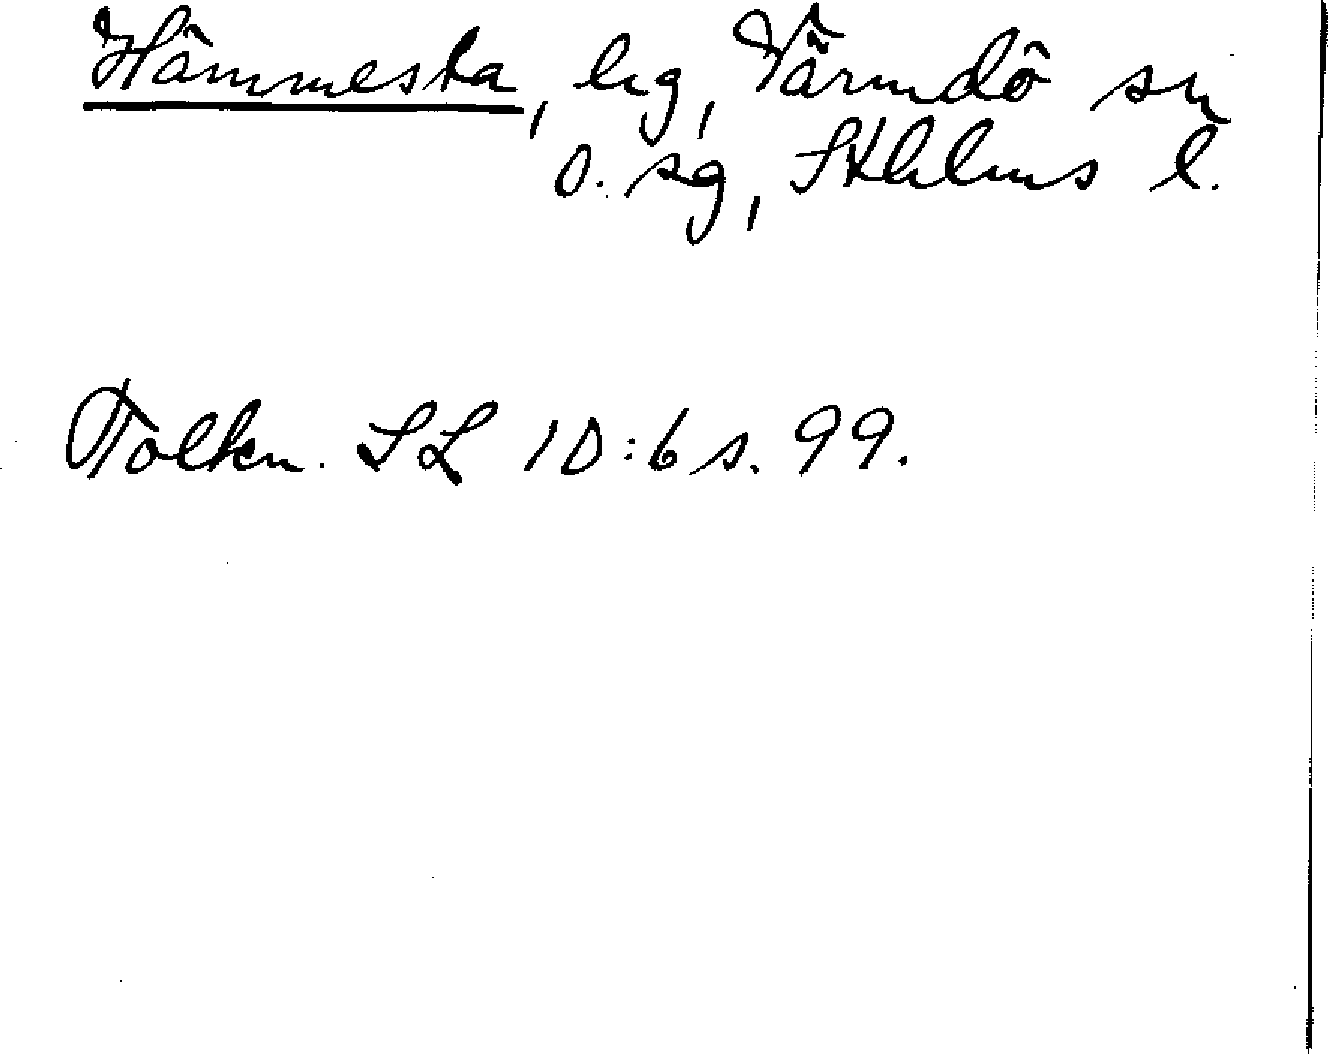 Hämmesta, hg, Värmdö sn
o. sg, Sthlms l.
Tolkn. SL 10:6 s. 99.